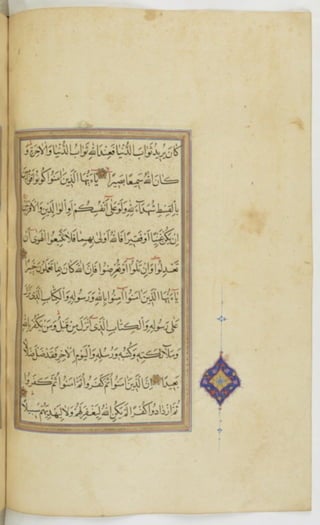 كان يريد ثواب الدنيا فعند الله ثواب الدنيا والاخرة و
كان الله سميعا بصيرا يا ايها الذين امنوا كونوا قوامين
بالقسط شهداء لله ولو على انفسكم او الوالدين والاقربين
ان يكن غنيا او فقيرا فالله اولى بهما فلا تتبعوا الهوى ان
تعدلوا وان تلووا او تعرضوا فان الله كان بما تعملون خبيرا
يا ايها الذين امنوا امنوا بالله ورسوله والكتاب الذي نزل
على رسوله والكتاب الذي انزل من قبل ومن يكفر بالله
وملائكته وكتبه ورسله واليوم الاخر فقد ضل ضلالا
بعيدا ان الذين امنوا ثم كفروا ثم امنوا ثم كفروا
ثم ازدادوا كفرا لم يكن الله ليغفر لهم ولا ليهديهم سبيلا